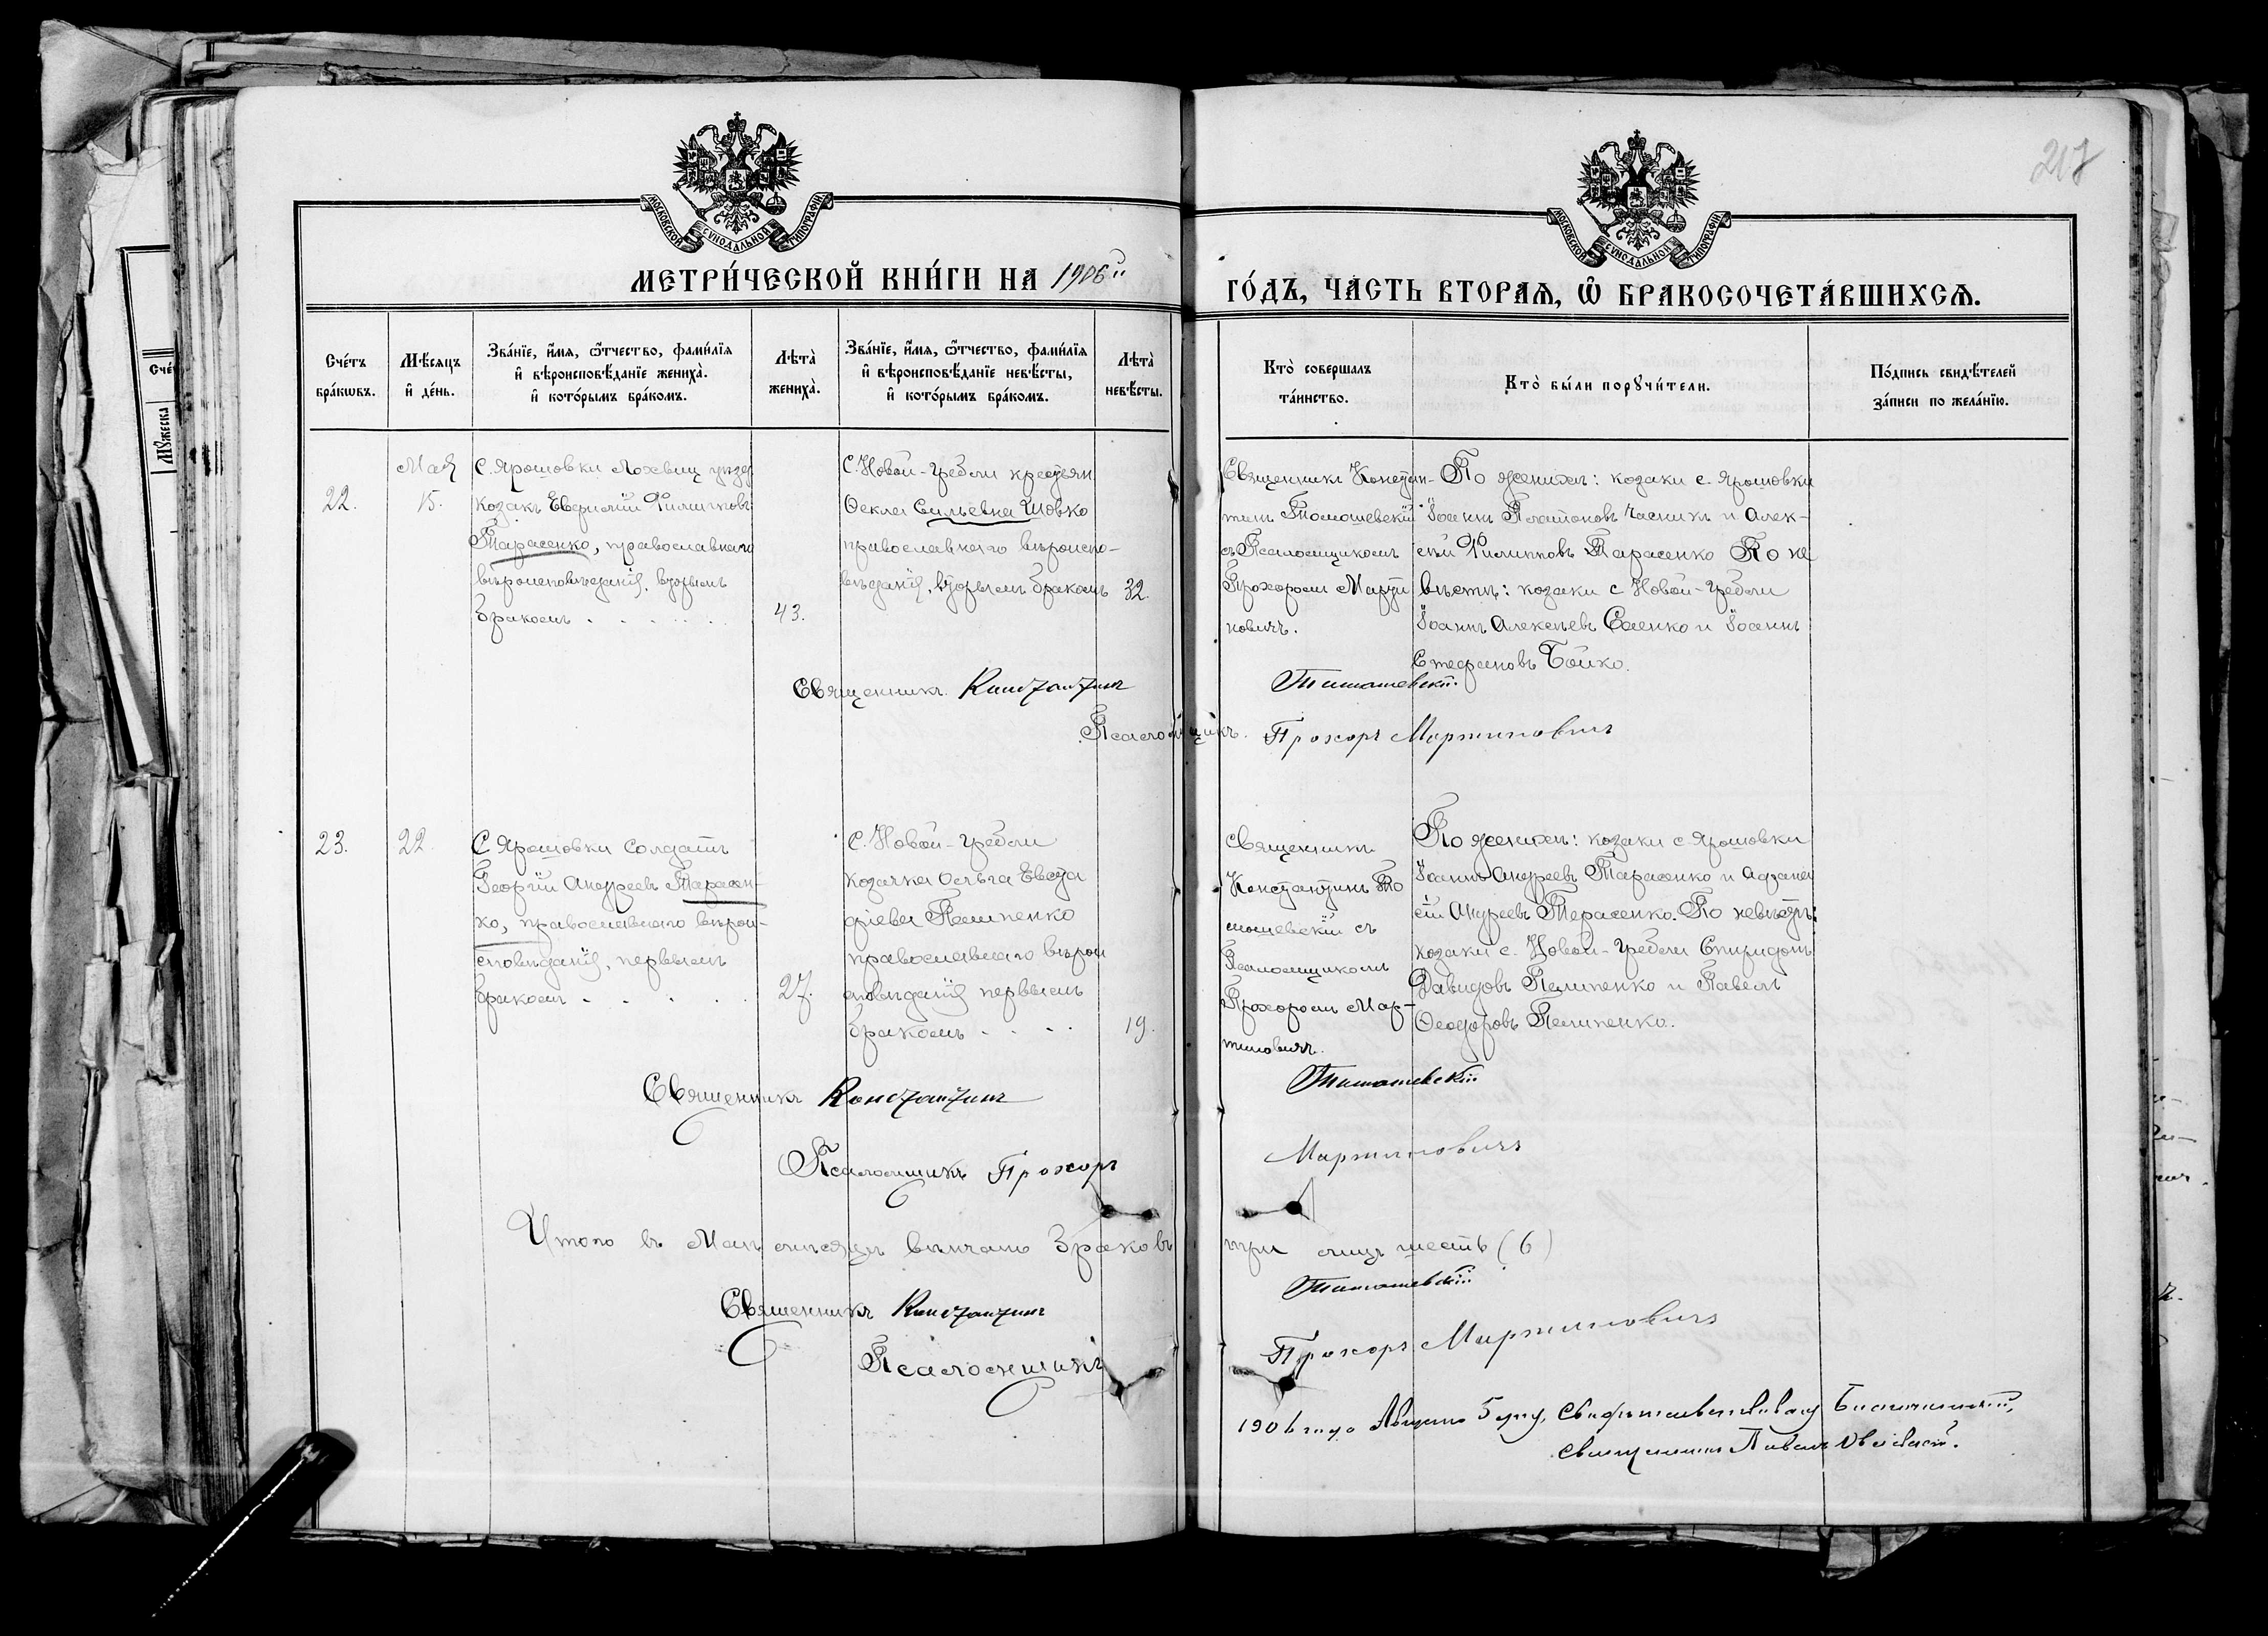 217
МОСКОВСКОЙ СУНОДАЛЬНОЙ ТИПОГРАФІИ
МОСКОВСКОЙ СУНОДАЛЬНОЙ ТИПОГРАФІИ
МЕТРИ́ЧЕСКОЙ КНИ́ГИ НА 1906й
ГО́ДЪ, ЧА́СТЬ ВТОРАЯ, Ѡ БРАКОСОЧЕТА́ВШИХСЯ.
Сче́тъ бра́кωвъ.
Мѣ́сяцъ и҆ де́нь.
Зва́нїе, и҆́мя, ѻ҆́тчество, фами́лїя
и҆ вѣроисповѣ́данїе жениха̀.
и҆ кото́рымъ бра́комъ.
Лѣта̀ жениха̀.
Зва́нїе, и҆́мя, ѻ҆́тчество, фами́лїя
и҆ вѣроисповѣ́данїе невѣ́сты,
и҆ кото́рымъ бра́комъ.
Лѣта̀ невѣ́сты.
Кто̀ соверша́лъ
та́инство.
Кто̀ бы́ли порꙋчи́тели.
По́дпись свидѣ́телей
за́писи по жела́нїю.
22.
Мая
15.
С. Ярошовки Лохвиц уѣзд
козакъ Евфимій Филипповъ
Тарасенко, православнаго
вѣроисповѣданія, вторымъ
бракомъ . . . . .
43.
С. Новой-Гребли крестьян
Ѳекла Савельева Шовко
православнаго вѣроиспо-
вѣданія, вторымъ бракомъ
32.
Священникъ Констан-
тинъ Томашевскій
съ Псаломщикомъ
Прохоромъ Марти
новичъ.
По женихѣ: козаки с. Ярошовки
Іоаннъ Платоновъ Часникъ и Алек-
сѣй Филипповъ Тарасенко По не
вѣстѣ: козаки с Новой-Гребли
Іоаннъ Алексѣевъ Саенко и Іоаннъ
Стефановъ Бойко.
Священникъ Константинъ Томашевскій
Псаломщикъ. Прохоръ Мартиновичъ
23.
22.
С Ярошовки Солдатъ
Георгій Андреевъ Тарасен-
ко, православнаго вѣрои-
сповѣданія, первымъ
бракомъ . . . .
27.
С. Новой-Гребли
козачка Ольга Евста
фіева Пелипенко
православнаго вѣрои
сповѣданія первымъ
бракомъ . . . .
19.
Священникъ
Константинъ То
машевскій съ
Псаломщикомъ
Прохоромъ Мар-
тиновичъ.
По женихѣ: козаки с. Ярошовки
Іоаннъ Андреевъ Тарасенко и Афана
сій Андреевъ Тарасенко. По невѣстѣ:
козаки с. Новой-Гребли Спиридонъ
Давидовъ Пелипенко и Павелъ
Ѳеодоровъ Пелипенко.
Священникъ Константинъ Томашевскій
Псаломщикъ Прохоръ Мартиновичъ
Итого въ Маѣ мѣсяцѣ вѣнчано браковъ три лицъ шесть (6)
Священникъ Константинъ Томашевскій
Псаломщикъ Прохоръ Мартиновичъ
1906 года Августа 5 дня, Свидѣтельствовалъ Благочинный,
Священникъ Павелъ